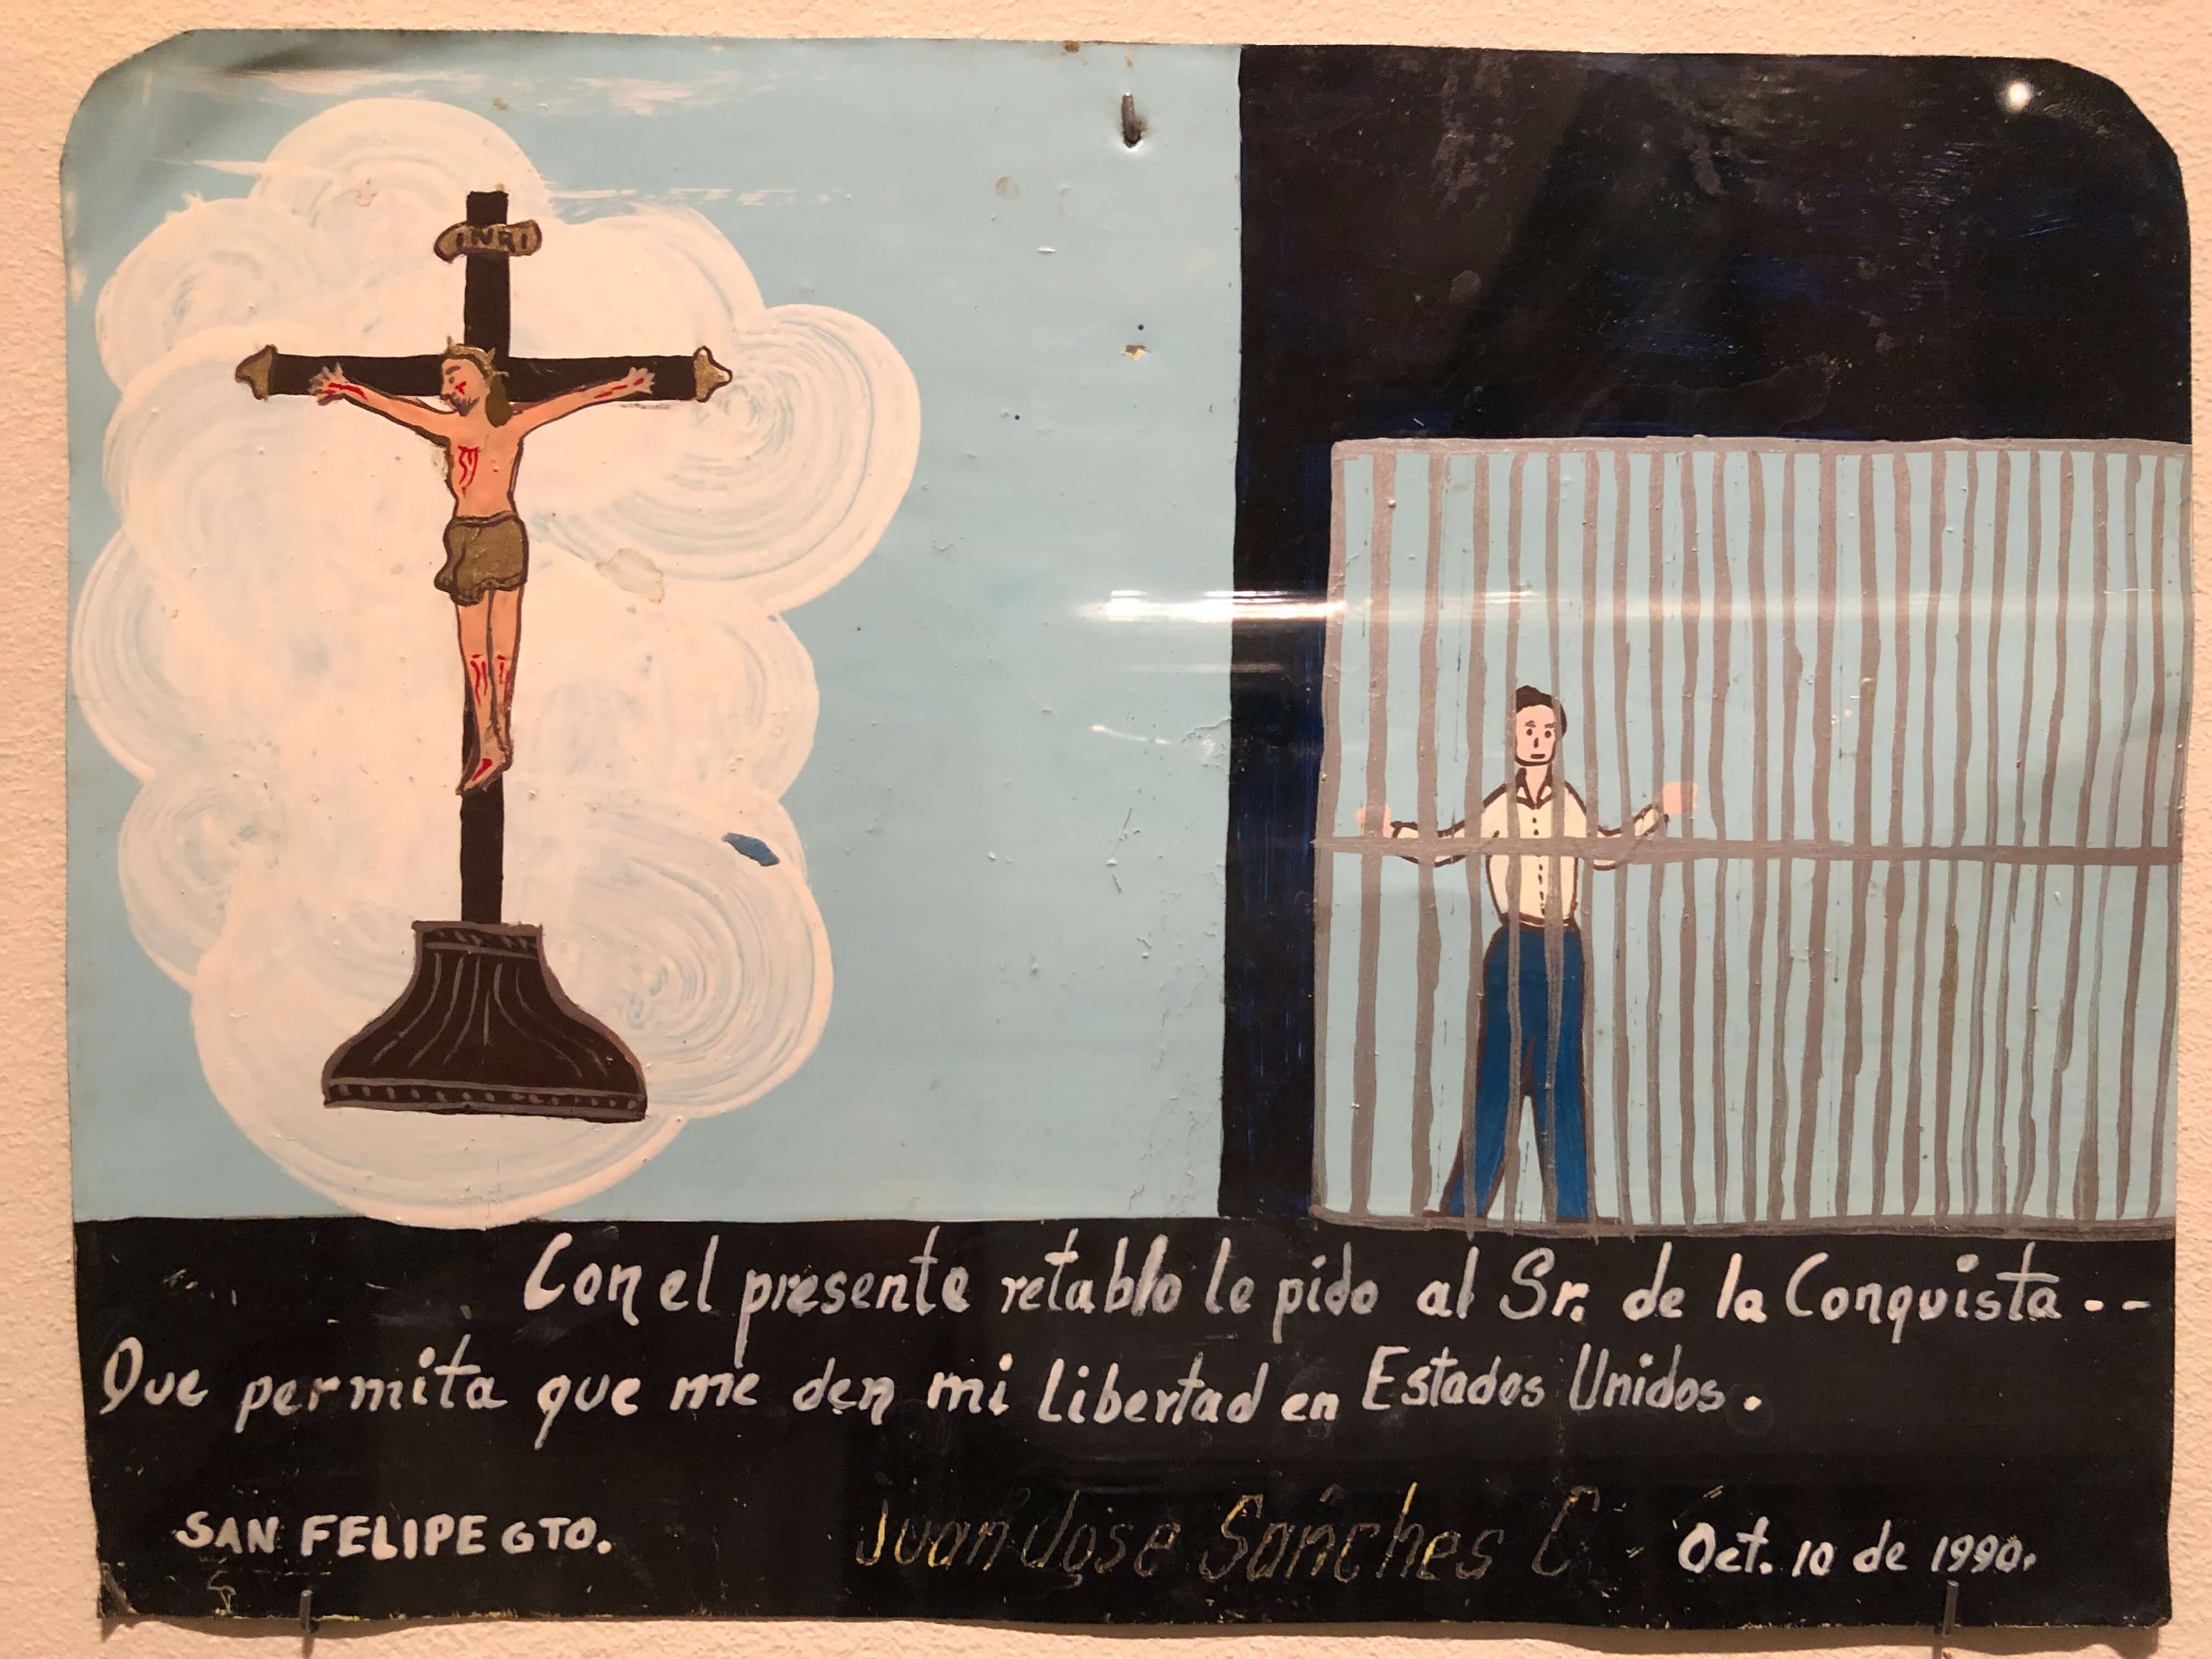 INRI
Con el presente retablo le pido al Sr. de la Conquista --
Que permita que me den mi libertad en Estados Unidos.
SAN FELIPE GTO. Juan Jose Sanches C Oct. 10 de 1990.